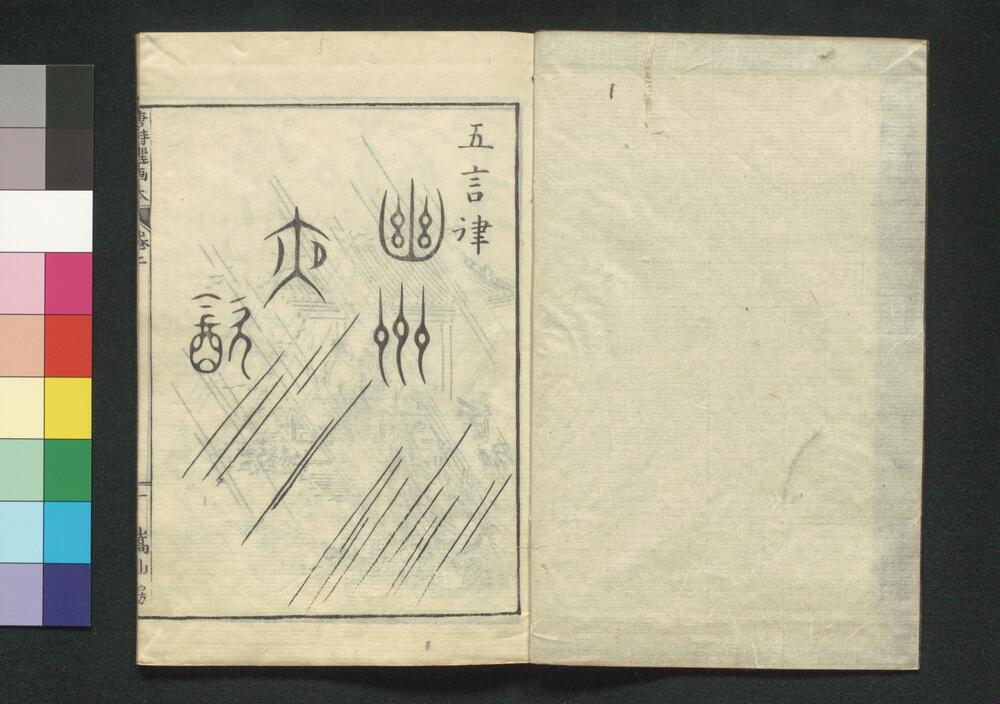 五言律
幽州
夜飲
唐詩選画本
卷二
一
嵩山房